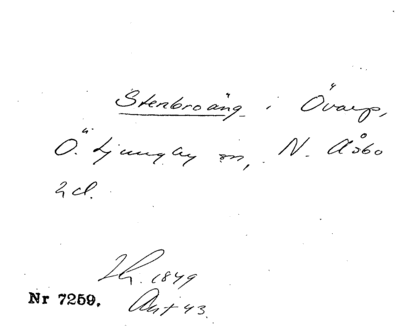 Stenbroäng i Övarp,
Ö. Ljungby sn, N. Åsbo
hd.
Lh. 1849
Nr 7259. Akt 43.